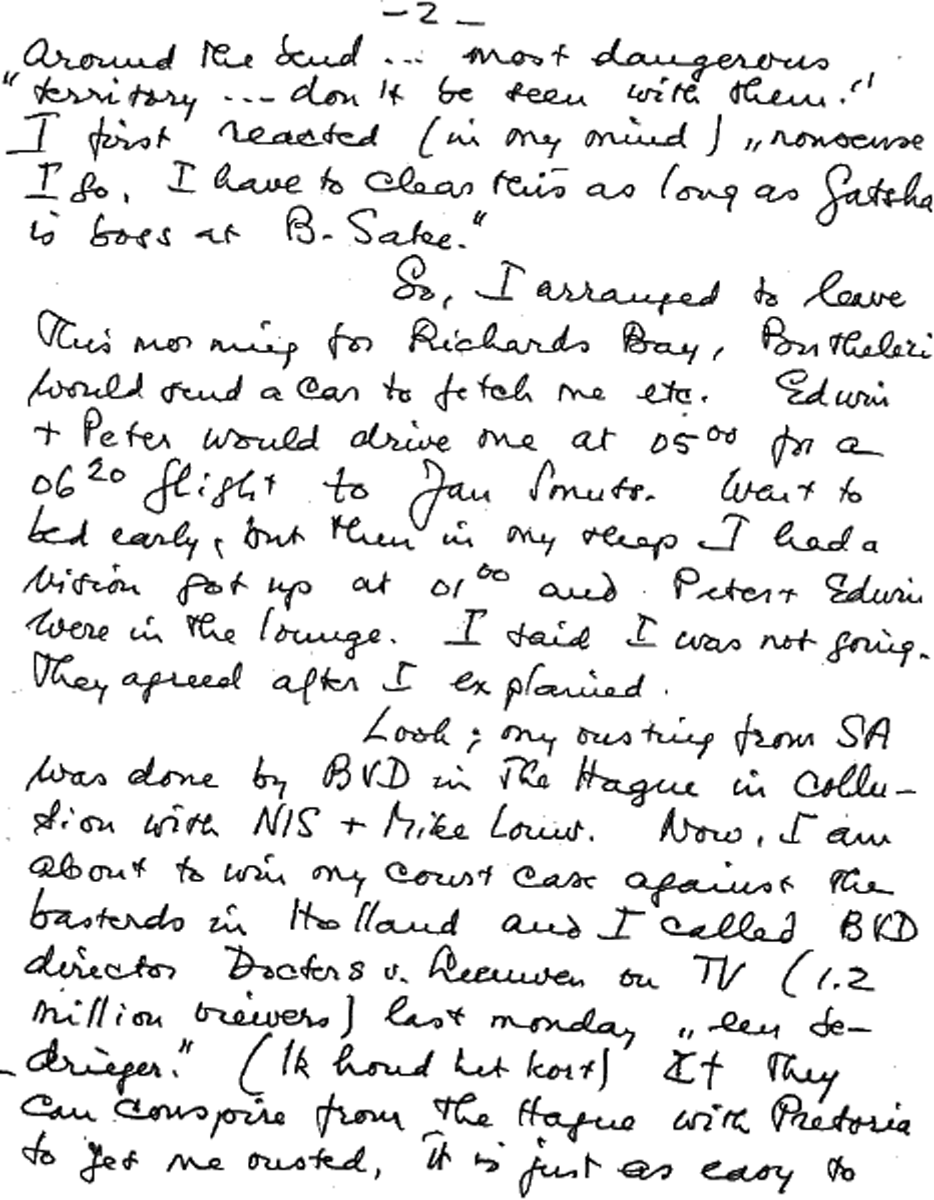 - 2 -
around the bend ... most dangerous
"territory ... don't be seen with them."
I first reacted (in my mind) „nonsense
I go, I have to clear this as long as Gatsha
is boss at B-Sake."
So, I arranged to leave
This morning for Richards Bay, Buthelezi
would send a car to fetch me etc. Edwin
+ Peter would drive me at 05 00 for a
06 20 flight to Jan Smuts. Went to
bed early, but then in my sleep I had a
vision got up at 01 00 and Peter + Edwin
were in the lounge. I said I was not going.
They agreed after I explained.
Look; my ousting from SA
was done by BVD in The Hague in collu-
sion with NIS + Mike Louw. Now, I am
about to win my court case against the
basterds in Holland and I called BVD
director Docters v. Leeuwen on TV (1.2
million viewers) last monday „een be-
drieger." (Ik houd het kort) If They
can conspire from The Hague with Pretoria
to get me ousted, it is just as easy to